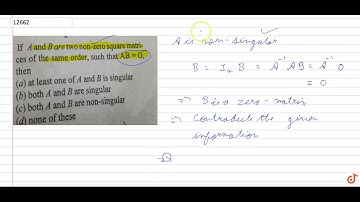 12662
If A and B are two non-zero square matri-
ces of the same order, such that AB = O,
then
(a) at least one of A and B is singular
(b) both A and B are singular
(c) both A and B are non-singular
(d) none of these
A is non-singular
B = I_n B = A^{-1} AB = A^{-1} O
= O
⇒ B is a zero-matrix
⇒ Contradicts the given
information